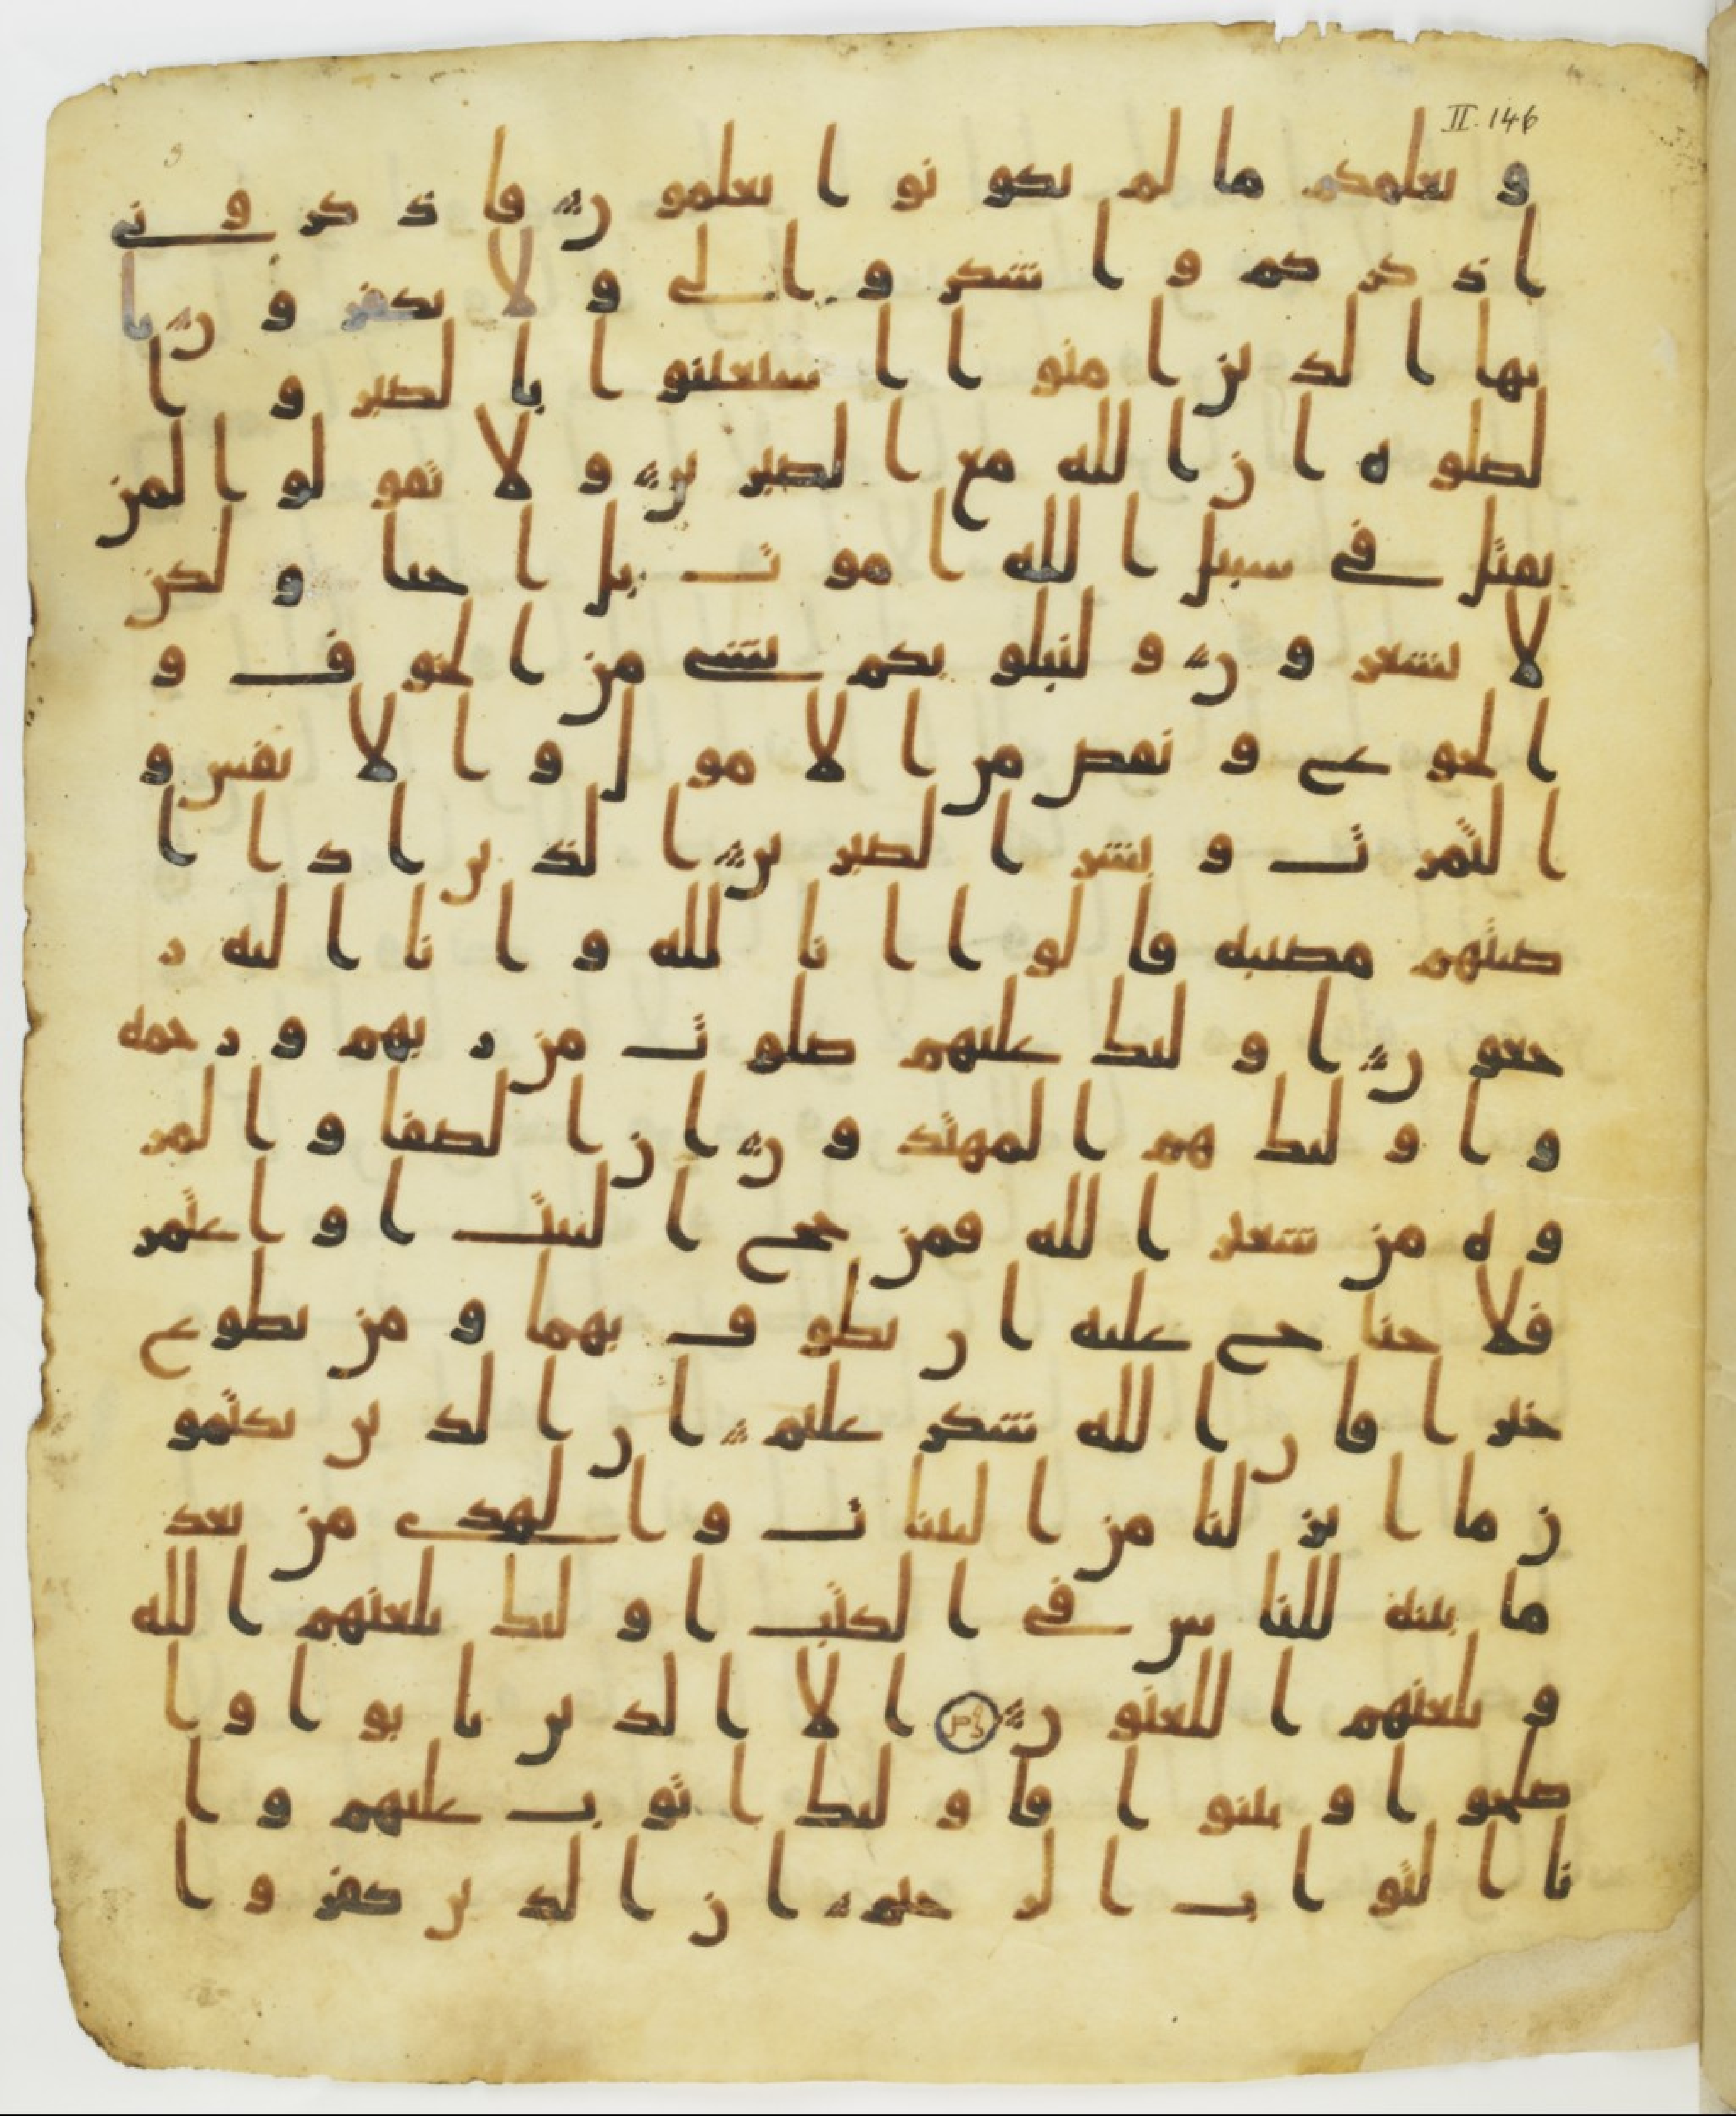 II. 146
و يعلمكم ما لم تكونوا تعلمون فاذكروني
اذكركم واشكروا لي ولا تكفرون يا
يها الذين امنوا استعينوا بالصبر وا
لصلوه ان الله مع الصبرين ولا تقولوا لمن
يقتل في سبيل الله اموت بل احيا ولكن
لا تشعرون ولنبلونكم بشي من الخوف و
الجوع ونقص من الامول والانفس و
الثمرت وبشر الصبرين الذين اذا ا
صبتهم مصيبه قالوا انا لله وانا اليه ر
جعون اوليك عليهم صلوت من ربهم ورحمه
واوليك هم المهتدون ان الصفا والمر
وه من شعير الله فمن حج البيت او اعتمر
فلا جناح عليه ان يطوف بهما ومن تطوع
خيرا فان الله شكر عليم ان الذين يكتمو
ن ما انزلنا من البينات والهدى من بعد
ما بينه للناس في الكتب اوليك يلعنهم الله
ويلعنهم اللعنون الا الذين تابوا وا
صلحوا وبينوا فاوليك اتوب عليهم وا
نا التواب الرحيم ان الذين كفروا